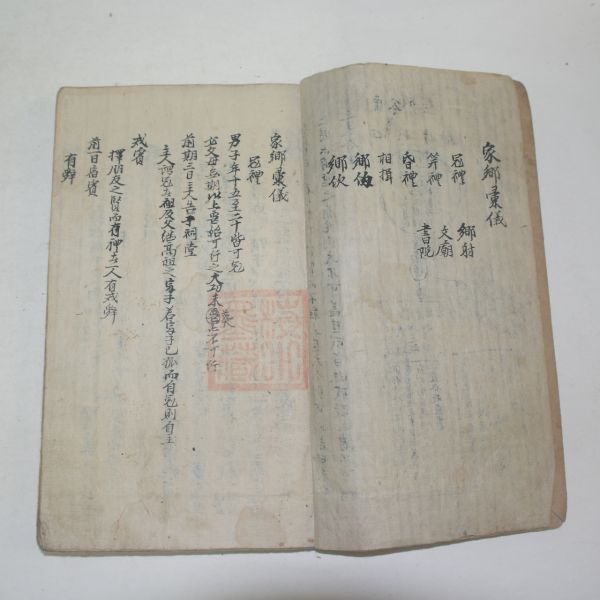 家鄉彙儀
冠禮 鄉射
笄禮 文廟
昏禮 書院
相揖
鄉約
鄉飮
家鄉彙儀
冠禮
男子年十五至二十皆可冠
必父母無期以上喪始可行之大功未葬亦不可行
前期三日主人告于祠堂
主人謂冠者祖及父繼高祖之宗子若宗子已孤而自冠則自主
戒賓
擇朋友之賢而有禮者一人有戒辭
前一日宿賓
有辭